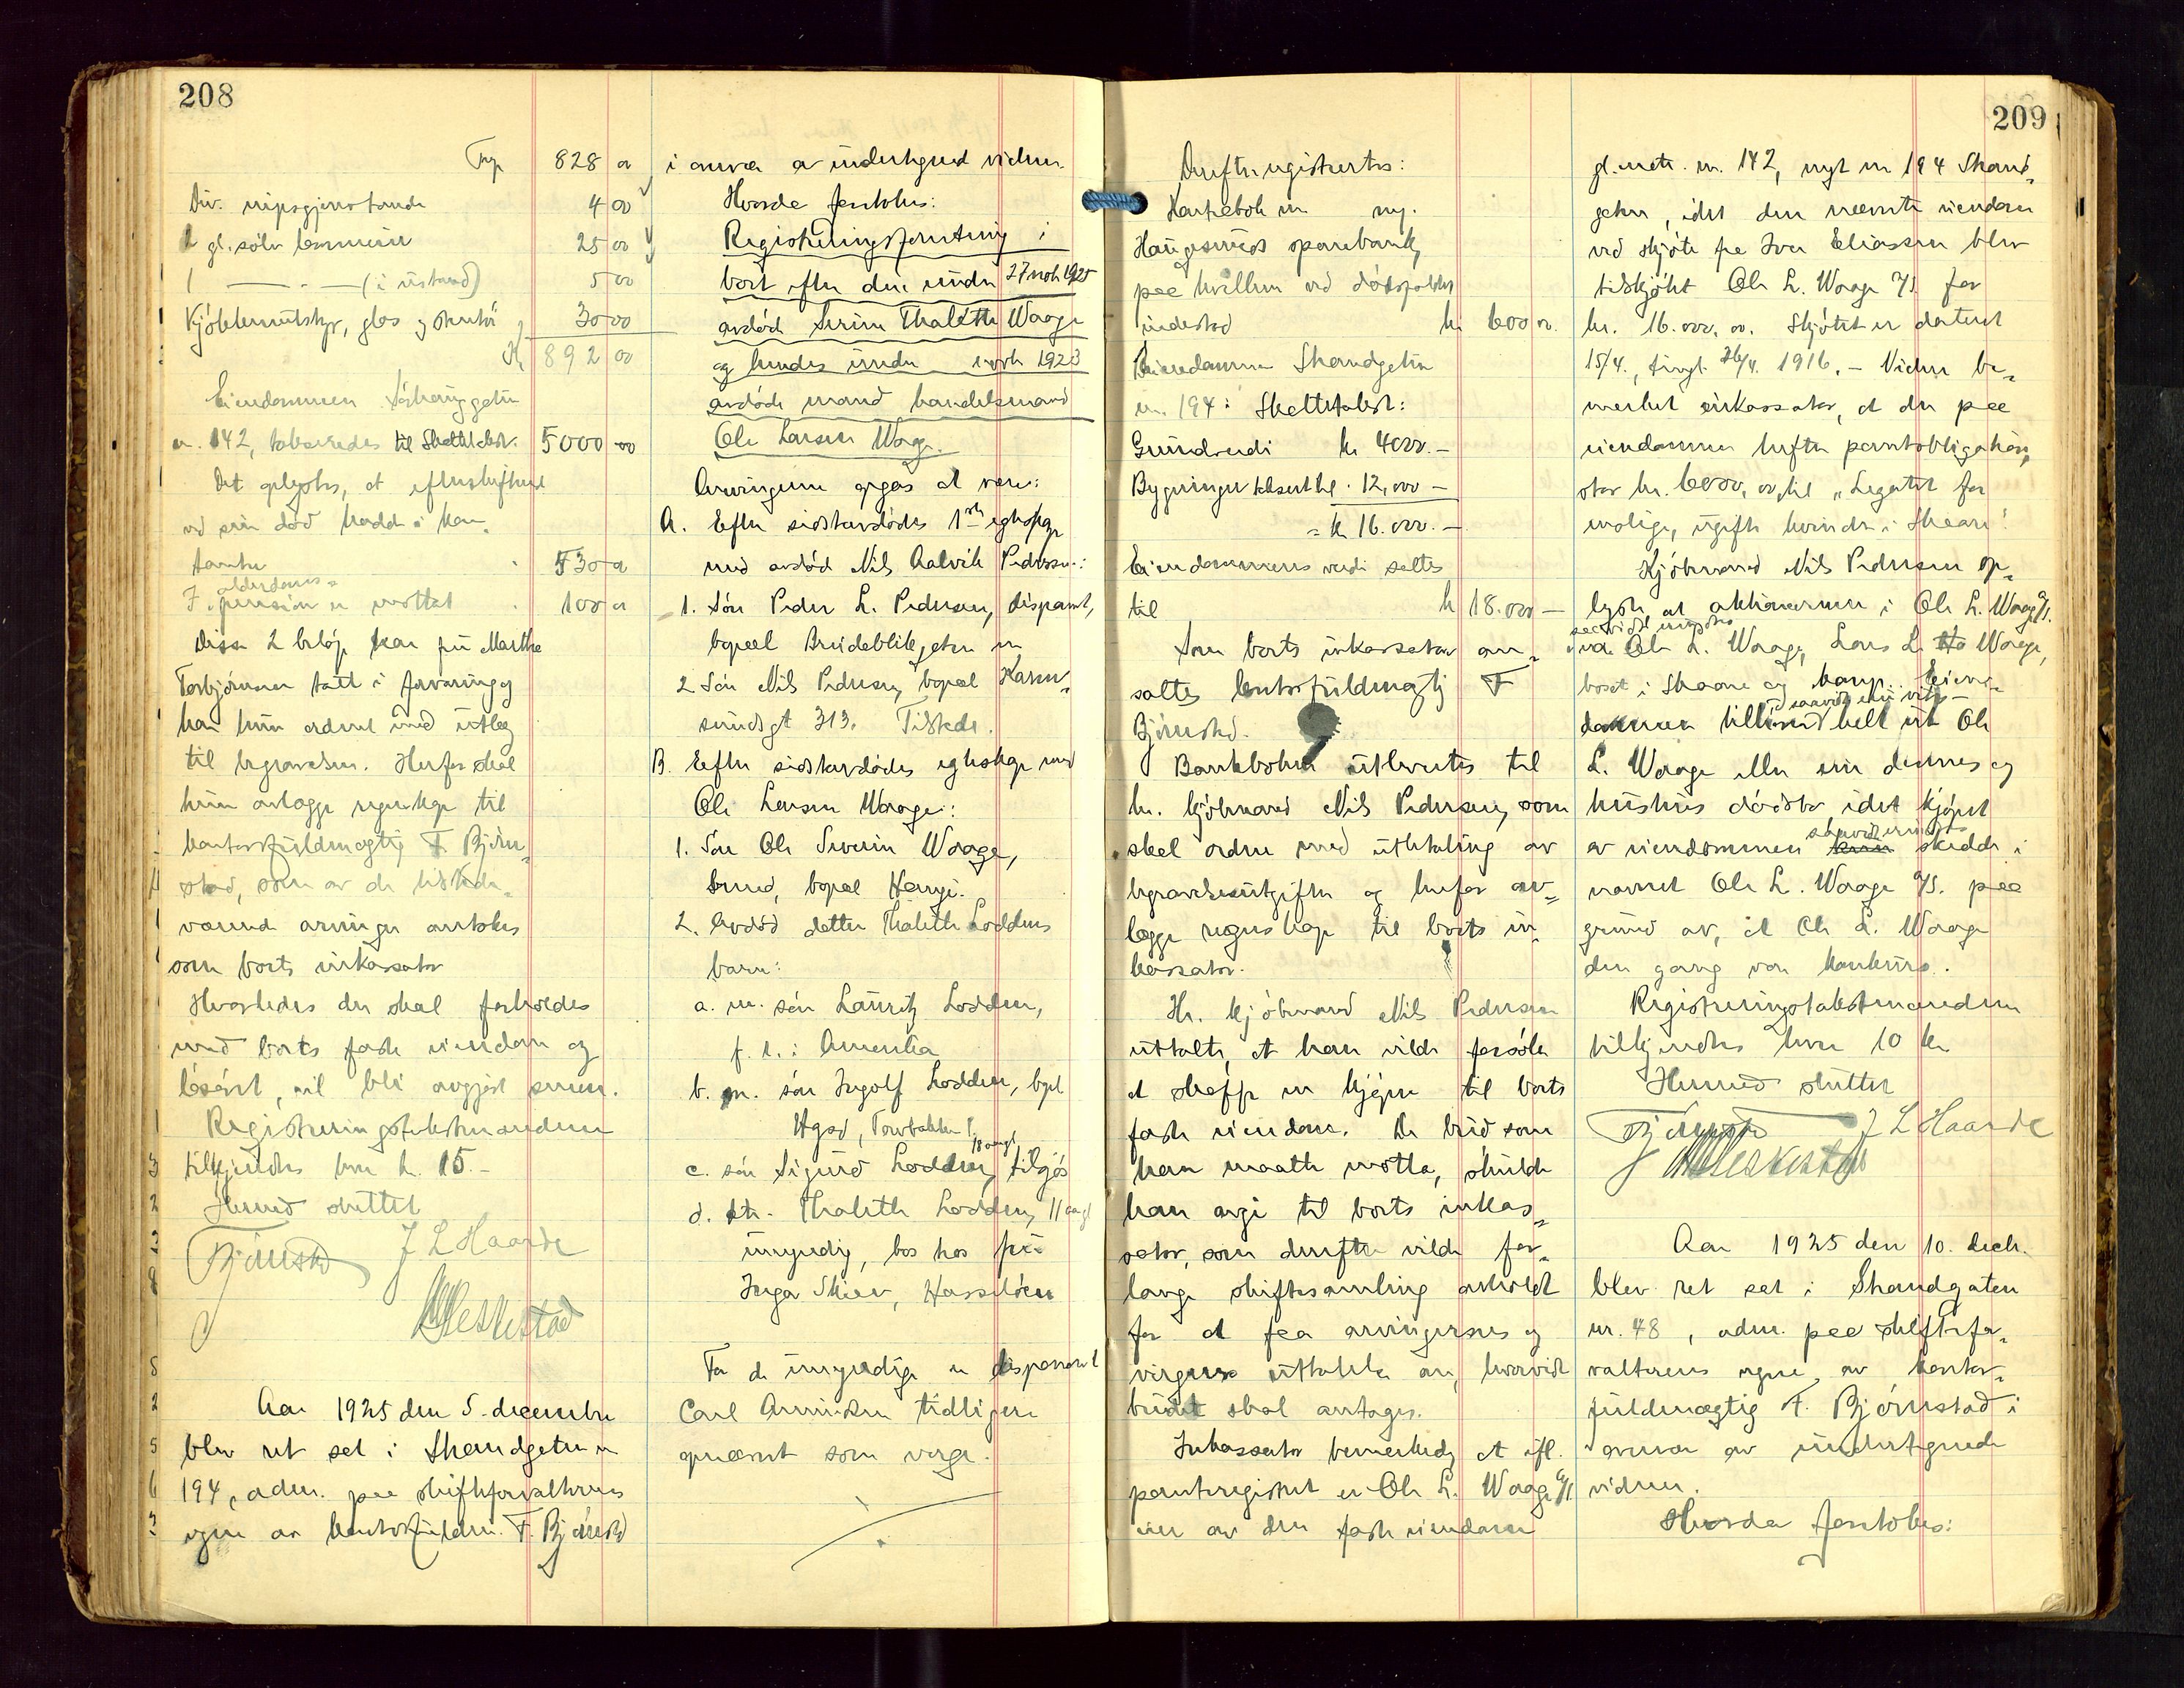 208
Trp 828 00
Div. nipsgjenstande 4 00
2 gl. sølv lommeur 25 00
1 — " — (i ustand) 5 00
Kjøkkenutstyr, glas og stentøi 30 00
Kr 892 00
Eiendommen Sørhauggaten
nr. 142, takseredes til skattetakst. 5000 00
Det oplystes, at efterlatte
ved sin død hadde i kon-
tanter 530 00
I alderdoms-
pension er mottat 100 00
Disse 2 beløp har fru Marthe
Torbjørnsen tatt i forvaring og
har hun ordnet med utlæg
til begravelsen. Herfor skal
hun avlægge regnskap til
kontorfuldmægtig F. Bjørn-
stad, som av de tilstede-
værende arvinger antokes
som boets inkassator
Hvorledes der skal forholdes
med boets faste eiendom og
løsøret, vil bli avgjort senere.
Registreringstakstmændene
tilkjendtes hver kr. 15.-
Hermed sluttet
Bjørnstad J L Haarde
Aar 1925 den 5. december
blev ret sat i Strandgaten nr
194, adm. paa skifteforvalterens
vegne av kontorfuldm. F. Bjørnstad
i overvær av undertegnede vidner.
Hvorda foretokes:
Registreringsforretning i
boet efter den under 27 novb 1925
avdøde Serine Thalette Waage
og hendes under novb 1923
avdøde mand handelsmand
Ole Larsen Waage.
Arvingerne opgas at være:
A. Efter sidstavdødes 1ste egteskap
med avdød Nils Aalvik Pedersen:
1. Søn Peder L. Pedersen, disponent,
bopæl Breidablikgaten nr
2. Søn Nils Pedersen, bopæl Karm-
sundsgt 313. Tilstede.
B. Efter sidstavdødes egteskap med
Ole Larsen Waage:
1. Søn Ole Severin Waage,
Smed, bopæl Haugs.
2. Avdød datter Thalette Loddens
barn:
a. m. søn Lauritz Lodden,
f. t. i Amerika
b. m. søn Ingolf Lodden, bopæl
Hgsd,
c. søn Sigurd Lodden, 18 aar gl. tilsjøs
d. dtr. Thalette Lodden, 11 aar gl
umyndig, bor hos frk.
Inga Skier, Hasseløen
For de umyndige er disponent
Carl Amundsen tidligere
opnævnt som verge.
209
Derefter registrertes:
Kontrabok nr ny.
Haugesunds sparebank,
paa hvilken ved dødsfaldet
indestod kr 600 00.
Eiendommen Strandgaten
nr. 194: Skattetakst:
Grundverdi kr 4000.-
Bygninger taksert til " 12,000 -
= kr 16.000.-
Eiendommens verdi sattes
til kr 18.000 -
Som boets inkassator an-
sattes kontorfuldmægtig F
Bjørnstad.
Bankboken utleveres til
hr. kjøbmand Nils Pedersen, som
skal ordne med utbetaling av
begravelsesutgifter og herfor av-
lægge regnskap til boets in-
kassator.
Hr. kjøbmand Nils Pedersen
uttalte, at han vilde forsøke
at skaffe en kjøper til boets
faste eiendom. De bud som
han maatte motta, skulde
han avgi til boets inkas-
sator, som derefter vilde for-
lange skiftesamling avholdt
for at faa arvingernes og
vergens uttalelse om, hvorvidt
budet skal antages.
Inkassator bemerket, at ifl.
panteregistret er Ole L. Waage A/S
eier av den faste eiendom
gl. matr. nr. 142, nyt nr 194 Strand-
gaten, idet den nævnte eiendom
ved skjøte fra Iver Eliassen blev
tilskjøtet Ole L. Waage A/S. for
kr. 16.000,00. Skjøtet er datert
15/4., tingl. 26/4. 1916. - Videre be-
merket inkassator, at der paa
eiendommen hefter pantobligation,
stor kr. 6000,00, til "Legatet for
værdige, ugifte kvinder i Skaare"
Kjøbmand Nils Pedersen op-
lyste, at aktionærerne i Ole L. Waage A/S.
saavidt erindres
var Ole L. Waage, Lars L. Waage,
boset i Skaare og ham. Eien-
saavidt han vet -
dommen tilhørte helt ut Ole
L. Waage eller nu dennes og
hustrus dødsbo idet kjøpet
av eiendommen saavidt erindres skedde i
navnet Ole L. Waage A/S. paa
grund av, at Ole L. Waage
den gang var konkurs.
Registreringstakstmændene
tilkjendtes hver 10 kr
Hermed sluttet
Bjørnstad J L Haarde
Aar 1925 den 10. decb.
blev ret sat i Strandgaten
nr. 48, adm. paa skiftefor-
valterens vegne av kontor-
fuldmægtig F. Bjørnstad i
overvær av undertegnede
vidner.
Hvorda foretokes: